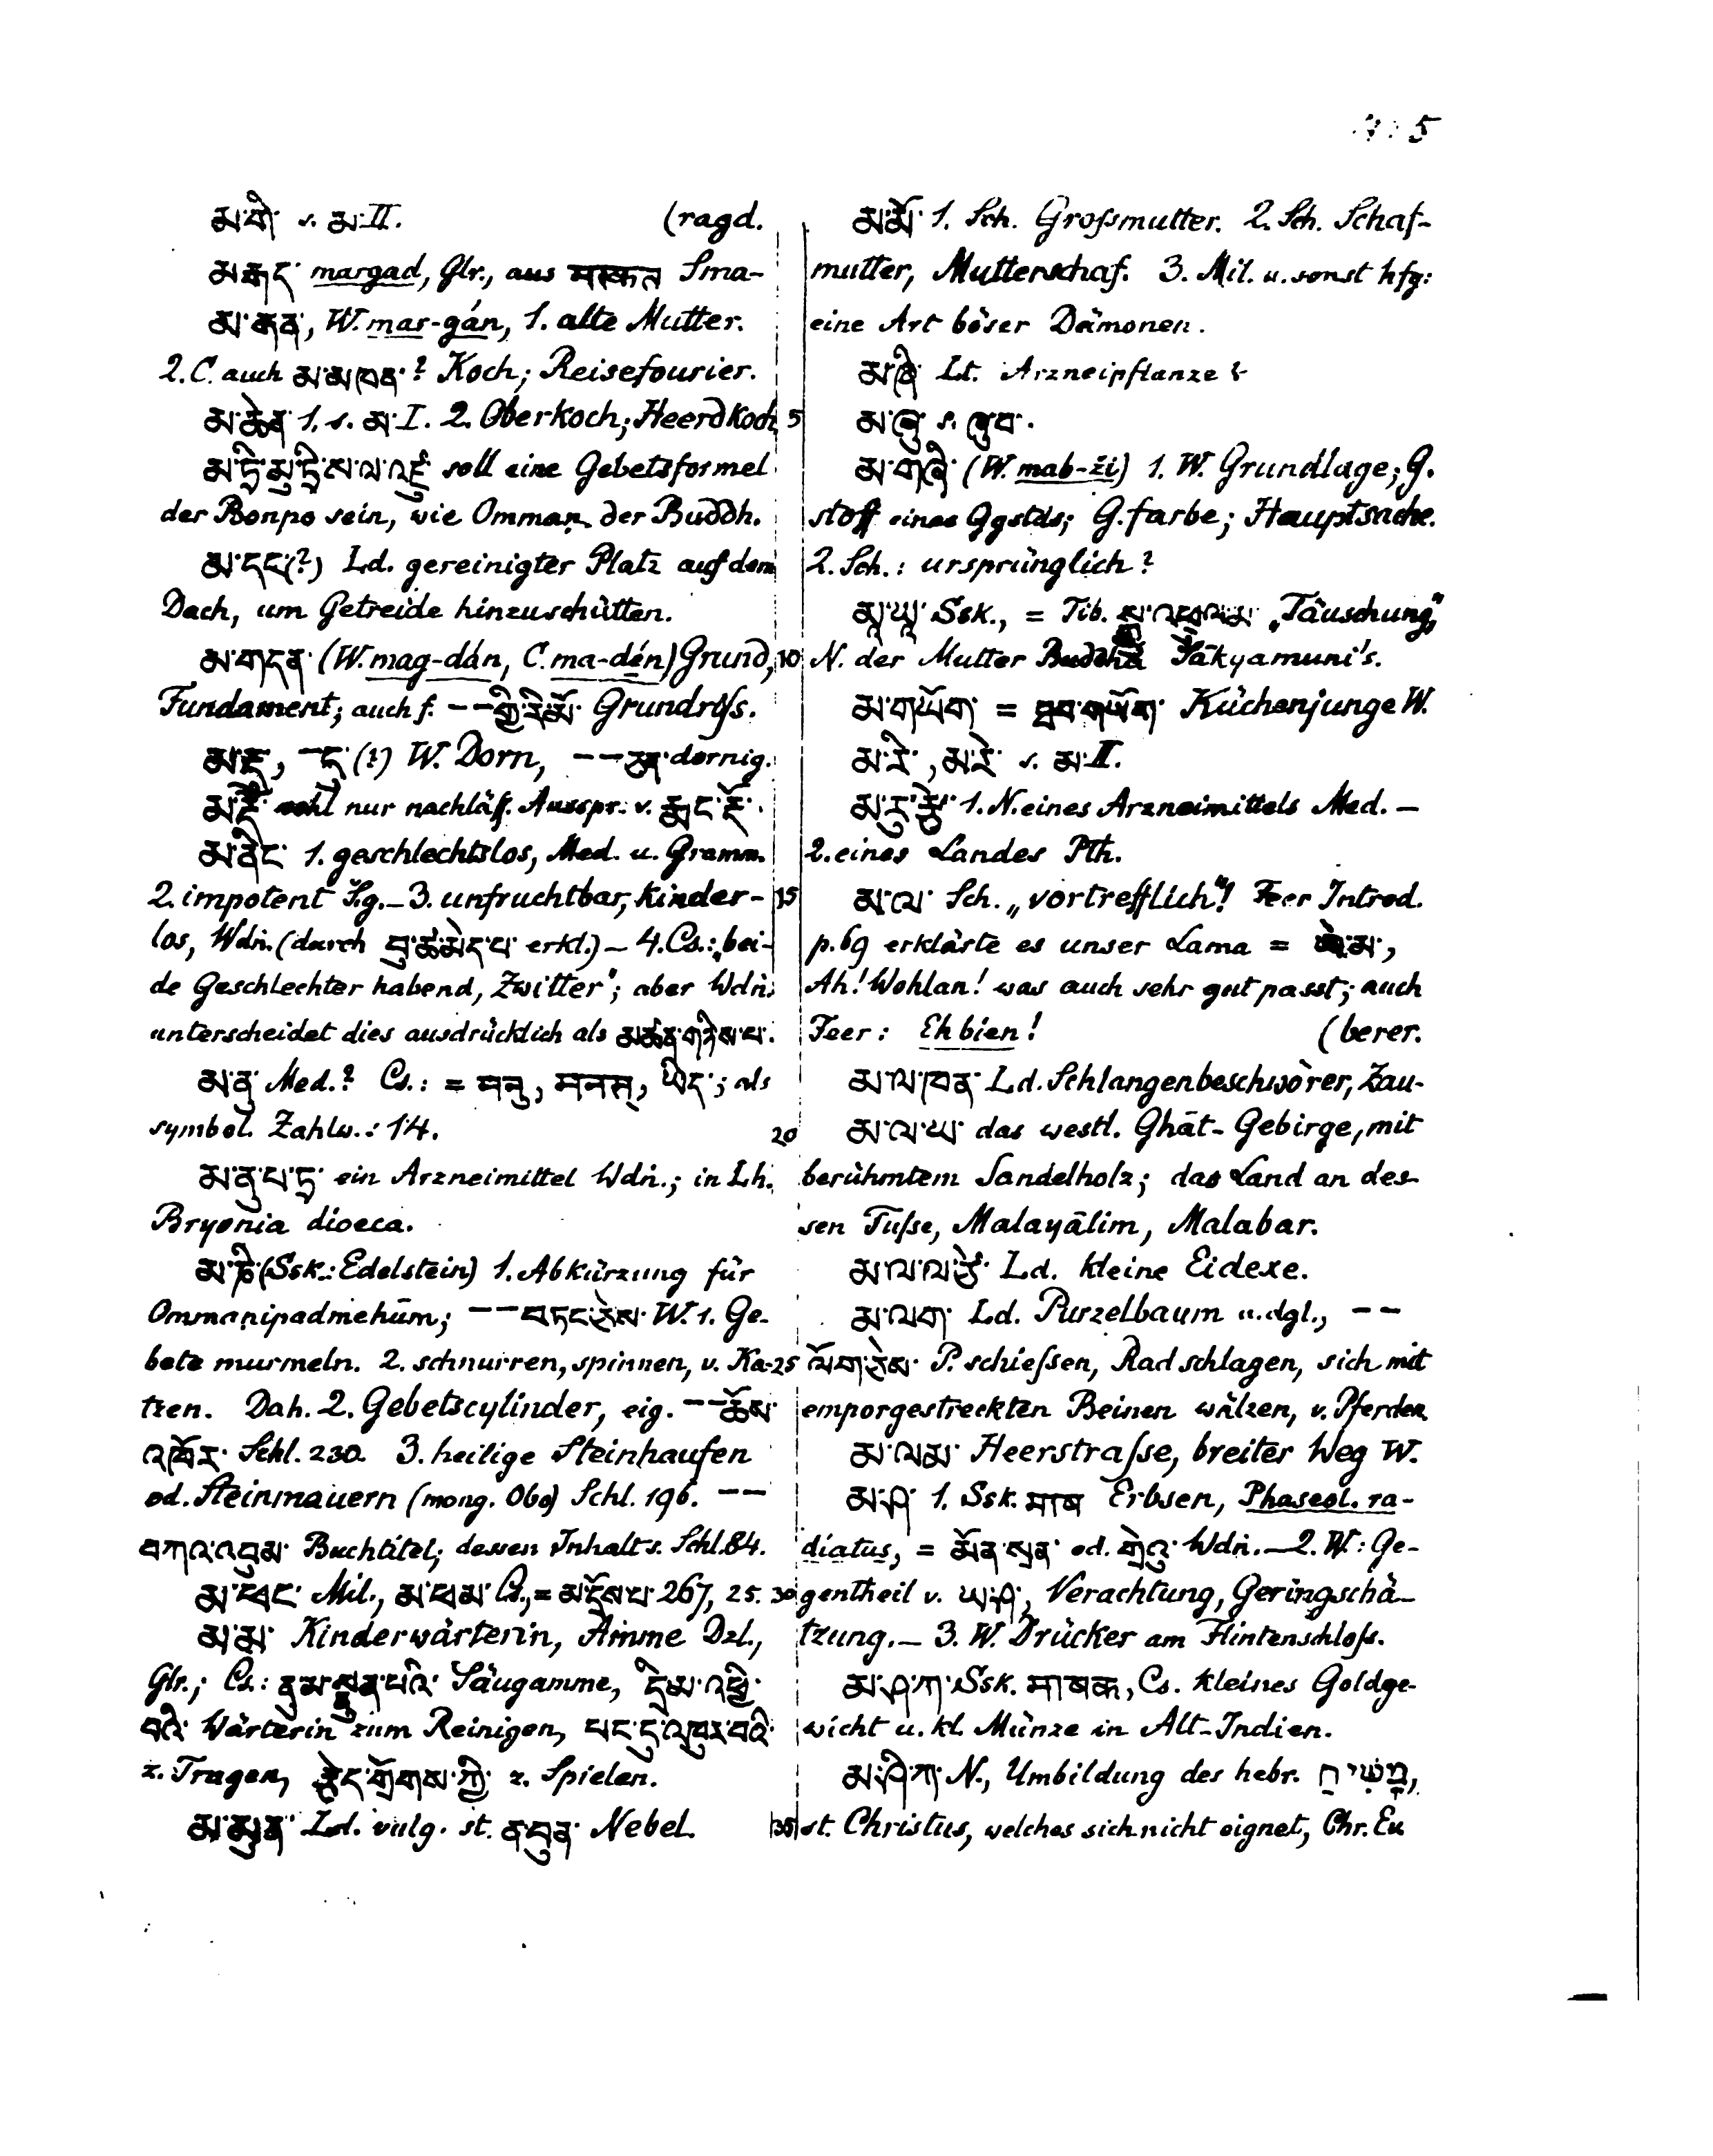 5
མ་གི་ s. མ་II. (ragd.
མ་རྒད་ margad, Glr., aus मरकत Sma-
མ་རྒན་, W. mar-gán, 1. alte Mutter.
2. C. auch མ་མཁན་? Koch; Reisefourier.
མ་ཆེན་ 1. s. མ་I. 2. Oberkoch; Heerdkoch
མ་ཏྲི་མུ་ཏྲི་ས་ལ་འཛུ་ soll eine Gebetsformel
der Bonpo sein, wie Omman der Buddh.
མ་དང་(?) Ld. gereinigter Platz auf dem
Dach, um Getreide hinzuschütten.
མ་གདན་ (W. mag-dán, C. ma-dén) Grund, 10
Fundament; auch f. –– གྱི་རི་མོ་ Grundriss.
(?) W. Dorn, –– ཅན་ dornig.
nur nachläss. Ausspr. v.
མ་ནིང་ 1. geschlechtslos, Med. u. Gramm.
2. impotent Šg. – 3. unfruchtbar, kinder- 15
los, Wdṅ. (durch བུ་ཚ་མེད་པ་ erkl.) – 4. Cs.: „bei-
de Geschlechter habend, Zwitter"; aber Wdṅ.
unterscheidet dies ausdrücklich als མཚན་གཉིས་པ་.
མ་ནུ་ Med.? Cs.: = मनु, मनस्, ཡིད་; als
symbol. Zahlw.: 14. 20
མ་ནུ་པ་ཏྲ་ ein Arzneimittel Wdṅ.; in Lh.
Bryonia dioeca.
མ་ཎི་ (Ssk.: Edelstein) 1. Abkürzung für
Ommaṇipadmehūm; –– བཏང་ཅེས་ W. 1. Ge-
bete murmeln. 2. schnurren, spinnen, v. Ka- 25
tzen. Dah. 2. Gebetscylinder, eig. –– ཆོས་
འཁོར་ Schl. 230. 3. heilige Steinhaufen
od. Steinmauern (mong. Obo) Schl. 196. ––
བཀའ་འབུམ་ Buchtitel; dessen Inhalt s. Schl. 84.
མ་ཕང་ Mil., མ་ཕམ་ Cs., = མ་དྲོས་པ་ 267, 25. 30
མ་མ་ Kinderwärterin, Amme Dzl.,
Glr.; Cs.: ནུ་མ་སྣུན་པའི་ Säugamme, དྲི་མ་འཕྱི་
བའི་ Wärterin zum Reinigen, པང་དུ་འཁུར་བའི་
z. Tragen, རྩེད་གྲོགས་ཀྱི་ z. Spielen.
མ་མུན་ Ld. vulg. st. ན་བུན་ Nebel. 35
མ་མོ་ 1. Sch. Grossmutter. 2. Sch. Schaf-
mutter, Mutterschaf. 3. Mil. u. sonst hfg:
eine Art böser Dämonen.
མ་ཞི་ Lt. Arzneipflanze?
5 མ་ཞུ་ s. ཞུབ་.
མ་གཞི་ (W. mab-ži) 1. W. Grundlage; G.
stoff eines Ggstds; G.farbe; Hauptsache.
2. Sch.: ursprünglich?
མཱ་ཡཱ་ Ssk., = Tib. སྒྱུ་འཕྲུལ་མ་ „Täuschung",
N. der Mutter Buddha Šākyamuni's.
མ་གཡོག་ = ཐབ་གཡོག་ Küchenjunge W.
མ་རི་, མ་རེ་ s. མ་II.
མ་རུ་རྩེ་ 1. N. eines Arzneimittels Med. –
2. eines Landes Pth.
མ་ལ་ Sch. „vortrefflich"! Feer Introd.
p. 69 erklärte es unser Lama =
Ah! Wohlan! was auch sehr gut passt; auch
Feer: Eh bien! (berer.
མ་ལ་ཁན་ Ld. Schlangenbeschwörer, Zau-
མ་ལ་ཡ་ das westl. Ghāt-Gebirge, mit
berühmtem Sandelholz; das Land an des-
sen Fusse, Malayālim, Malabar.
མ་ལ་ལ་ཙེ་ Ld. kleine Eidexe.
མ་ལག་ Ld. Purzelbaum u. dgl., ––
ལོག་ཅེས་ P. schiessen, Rad schlagen, sich mit
emporgestreckten Beinen wälzen, v. Pferden
མ་ལམ་ Heerstrasse, breiter Weg W.
མ་ཤ་ 1. Ssk. माष Erbsen, Phaseol. ra-
diatus, = མོན་སྲན་ od. གྲེའུ་ Wdṅ. – 2. W.: Ge-
gentheil v. ཡ་ཤ་, Verachtung, Geringschä-
tzung. – 3. W. Drücker am Flintenschloss.
མ་ཤ་ཀ་ Ssk. माषक, Cs. kleines Goldge-
wicht u. kl. Münze in Alt-Indien.
མ་ཤི་ཀ་ N., Umbildung des hebr. מָשִׁיחַ,
st. Christus, welches sich nicht eignet, Chr. Eu